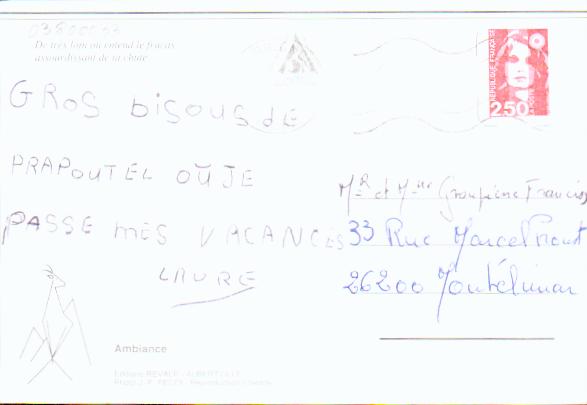 03800033
De très loin on entend le fracas
assourdissant de la chute
RÉPUBLIQUE FRANÇAISE
2,50
GROS BISOUS dE
PRAPOUTEL OÙ JE
PASSE MES VACANCES
LAURE
Mr et Mme Francis
33 Rue Marcel Proust
26200 Montélimar
Ambiance
Editions REVALP - ALBERTVILLE